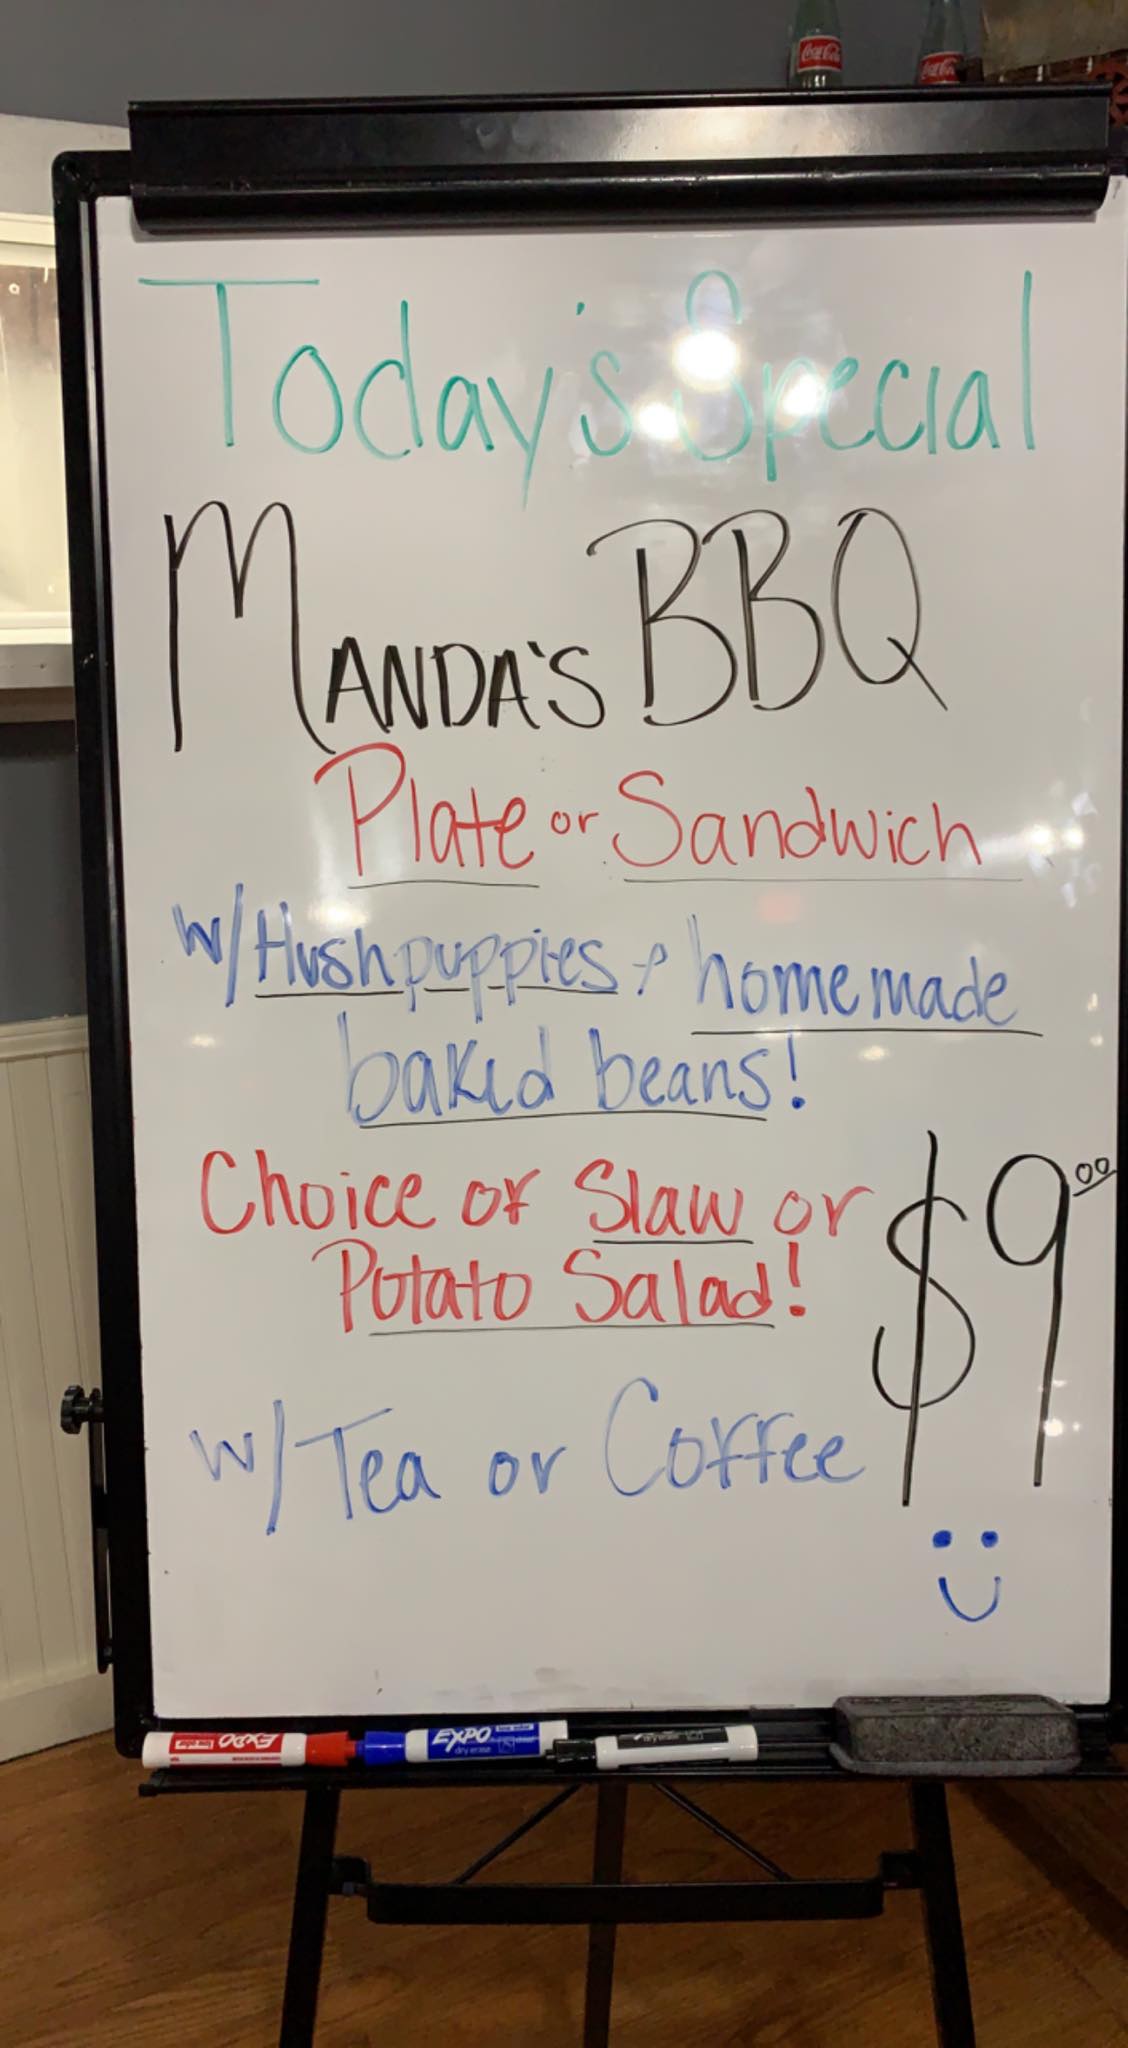 Coca-Cola
Coca-Cola
Today's Special
MANDA'S BBQ
Plate or Sandwich
w/ Hushpuppies + homemade
baked beans!
Choice of Slaw or
Potato Salad!
$9.00
w/ Tea or Coffee
EXPO
EXPO
dry erase